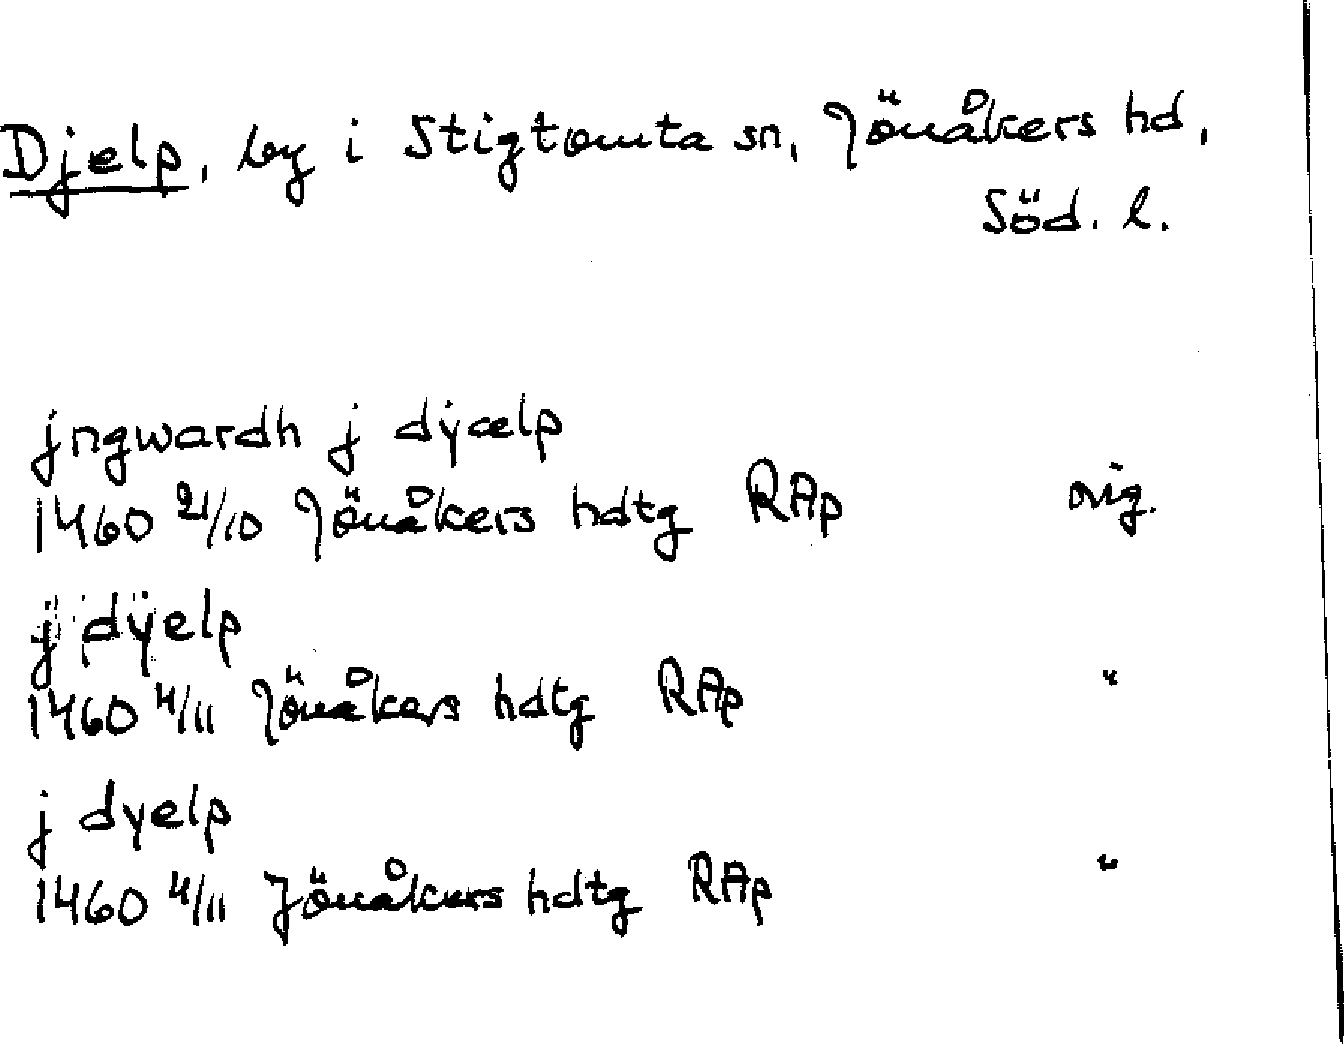 Djelp, by i Stigtomta sn, Jönåkers hd,
Söd. l.
jngwardh j dẏælp
1460 21/10 Jönåkers hdtg RAp orig.
j dÿelp
1460 4/11 Jönåkers hdtg RAp "
j dyelp
1460 4/11 Jönåkers hdtg RAp "